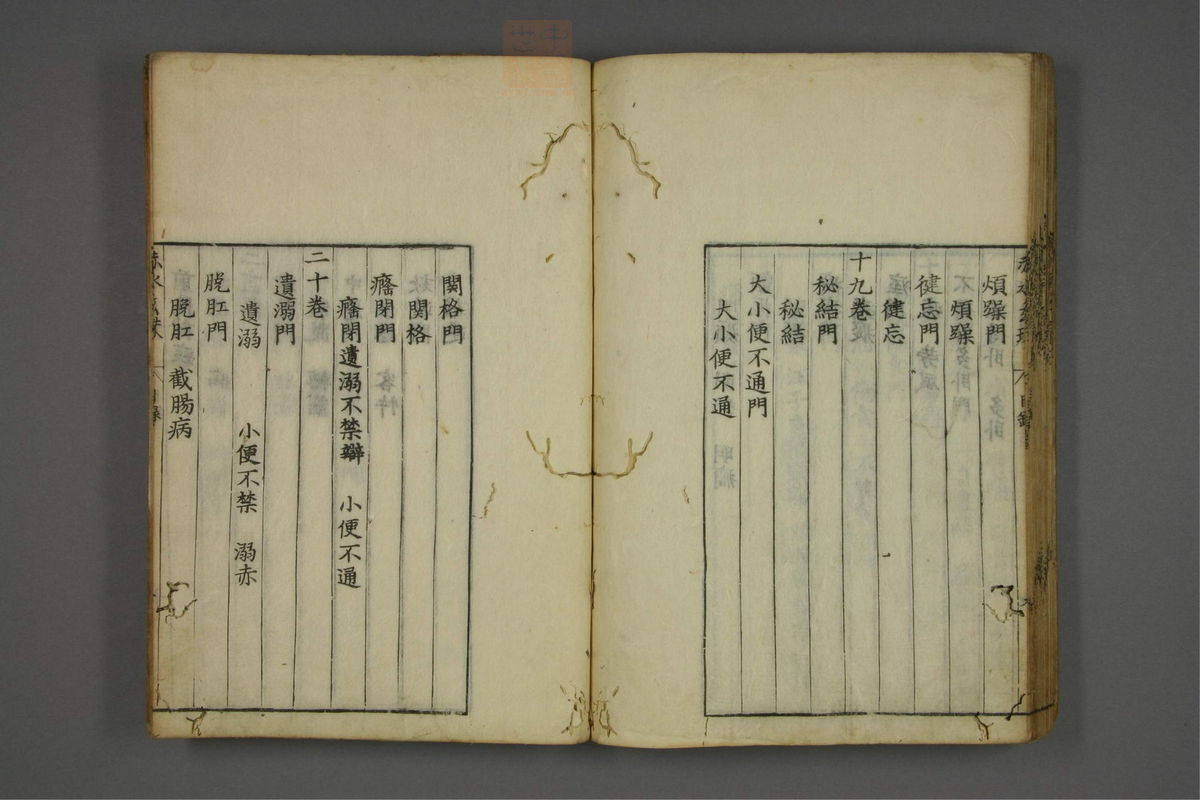 煩躁門
煩躁
健忘門
健忘
十九卷
秘結門
秘結
大小便不通門
大小便不通
関格門
関格
癃閉門
癃閉遺溺不禁辯 小便不通
二十卷
遺溺門
遺溺 小便不禁 溺赤
脫肛門
脫肛 截腸病